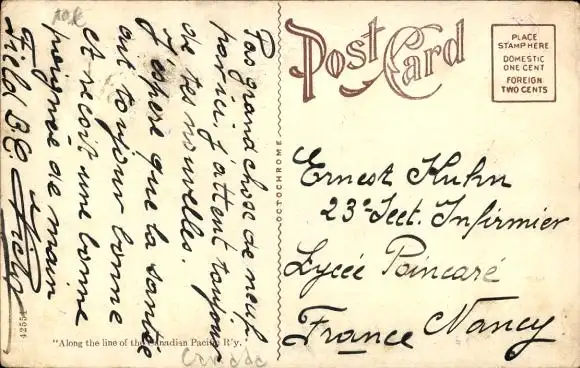 Pas grand chose de neuf
par ici. J'attent toujour
de tes nouvelles.
J'espere que la santée
est toujour bonne
et recoit une bonne
poignee de main
Field B.C.
42554
"Along the line of the Canadian Pacific R'y.
Canada
OCTOCHROME
Post Card
PLACE
STAMP HERE
DOMESTIC
ONE CENT
FOREIGN
TWO CENTS
Ernest Kuhn
23e Sect. Infirmier
Lycée Poincaré
Nancy
France